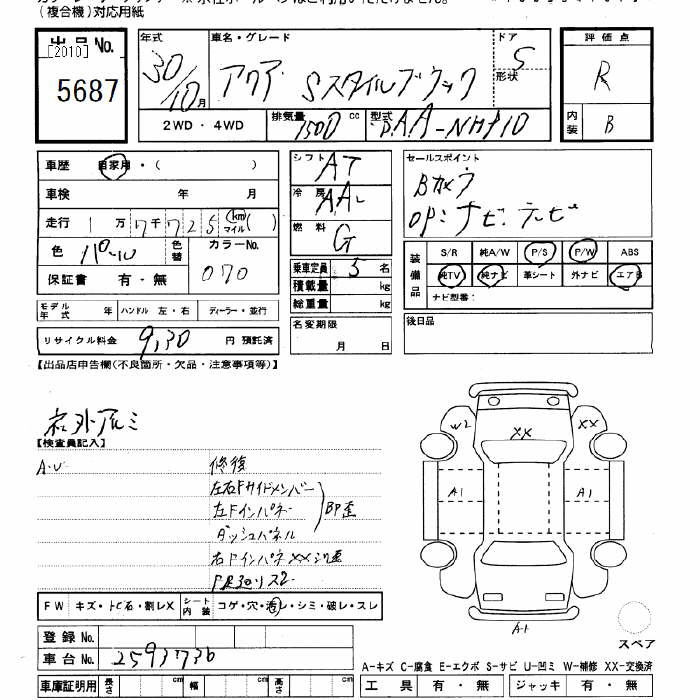 (複合機)対応用紙
出品 No.
[2010]
5687
年式
30/10月
車名・グレード
アクア Sスタイルブラック
ドア
5
形状
2WD ・ 4WD
排気量 1500 cc
型式 DAA-NHP10
評価点
R
内装
B
車歴 自家用・( )
車検 年 月
走行 1万7千725 (km マイル)( )
色 パール 色替 カラーNo. 070
保証書 有・無
モデル年式 年 ハンドル 左・右 ディーラー・並行
リサイクル料金 9,130 円 預託済
シフト AT
冷房 AAC
燃料 G
乗車定員 5 名
積載量 kg
総重量 kg
名変期限
月 日
セールスポイント
Bカメラ
OP:ナビ.テレビ
装備品
S/R 純A/W P/S P/W ABS
純TV 純ナビ 革シート 外ナビ エアB
ナビ型番:
後日品
【出品店申告欄(不良箇所・欠品・注意事項等)】
社外アルミ
【検査員記入】
A・U
修復
左右Fサイドメンバー
左Fインパネ
BP歪
ダッシュパネル
右Fインパネ XX
W2 XX XX
A1 A1
A1
スペア
FW キズ・トビ石・割レX シート内装 コゲ・穴・汚レ・シミ・破レ・スレ
登録 No.
車台 No. 2593736
車庫証明用 長さ cm 幅 cm 高さ cm
A-キズ C-腐食 E-エクボ S-サビ U-凹ミ W-補修 XX-交換済
工具 有・無 ジャッキ 有・無